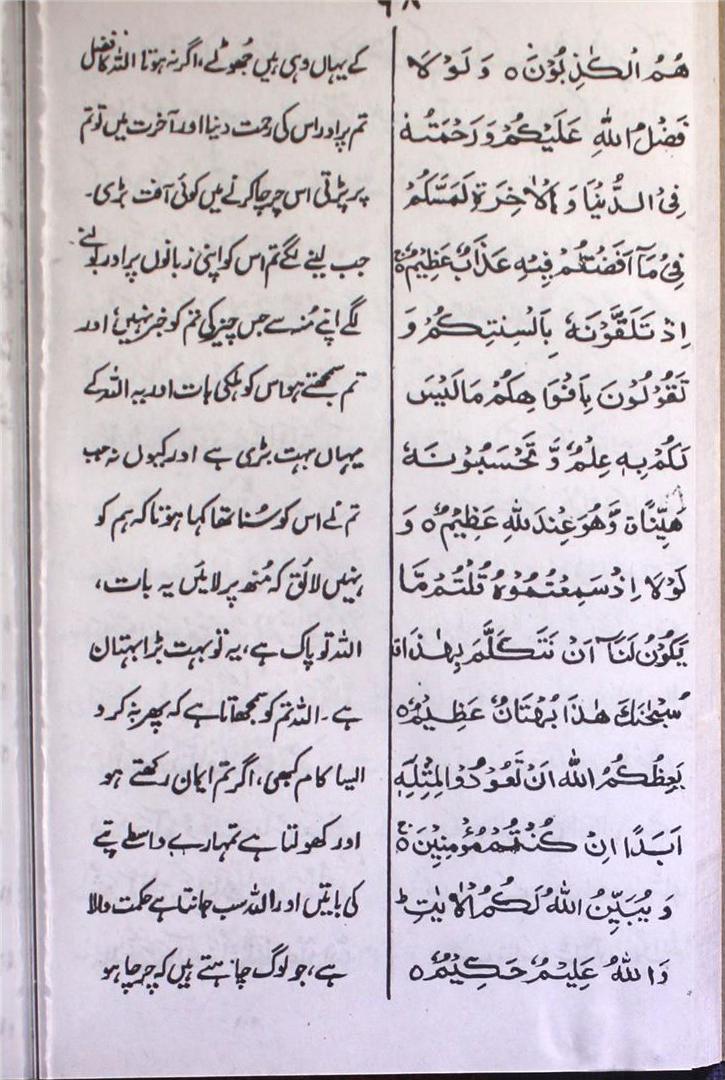 ٦٨
هُمُ الْكٰذِبُوْنَ ○ وَلَوْ لَا
فَضْلُ اللهِ عَلَيْكُمْ وَرَحْمَتُهٗ
فِى الدُّنْيَا وَالْاٰخِرَةِ لَمَسَّكُمْ
فِىْ مَآ اَفَضْتُمْ فِيْهِ عَذَابٌ عَظِيْمٌ ○
اِذْ تَلَقَّوْنَهٗ بِاَلْسِنَتِكُمْ وَ
تَقُوْلُوْنَ بِاَفْوَاهِكُمْ مَا لَيْسَ
لَكُمْ بِهٖ عِلْمٌ وَّ تَحْسَبُوْنَهٗ
هَيِّنًا ۃ وَّهُوَ عِنْدَ للهِ عَظِيْمٌ ○ وَ
لَوْ لَا اِذْ سَمِعْتُمُوْهُ قُلْتُمْ مَّا
يَكُوْنُ لَنَآ اَنْ نَّتَكَلَّمَ بِهٰذَا
سُبْحٰنَكَ هٰذَا بُهْتَانٌ عَظِيْمٌ ○
يَعِظُكُمُ اللهُ اَنْ تَعُوْدُوْا لِمِثْلِهٖ
اَبَدًا اِنْ كُنْتُمْ مُؤْمِنِيْنَ ○
وَ يُبَيِّنُ اللهُ لَكُمُ الْاٰيٰتِ ط
وَاللهُ عَلِيْمٌ حَكِيْمٌ ○
کے یہاں وہی ہیں جُھوٹے، اگر نہ ہوتا اللہ کا فضل
تم پر اور اس کی رحمت دنیا اور آخرت میں تو تم
پر پڑتی اس چرچا کرنے میں کوئی آفت بڑی۔
جب لینے لگے تم اس کو اپنی زبانوں پر اور بولنے
لگے اپنے مُنہ سے جس چیز کی تم کو خبر نہیں، اور
تم سمجھتے ہو اس کو ہلکی بات اور یہ اللہ کے
یہاں بہت بڑی ہے اور کیوں نہ جب
تم نے اس کو سُنا تھا کہا ہوتا کہ ہم کو
نہیں لائق کہ مُنھ پر لائیں یہ بات،
اللہ تو پاک ہے، یہ تو بہت بڑا بہتان
ہے۔ اللہ تم کو سمجھاتا ہے کہ پھر نہ کرو
ایسا کام کبھی، اگر تم ایمان رکھتے ہو
اور کھولتا ہے تمہارے واسطے پتے
کی باتیں اور اللہ سب جانتا ہے حکمت والا
ہے، جو لوگ چاہتے ہیں کہ چرچا ہو